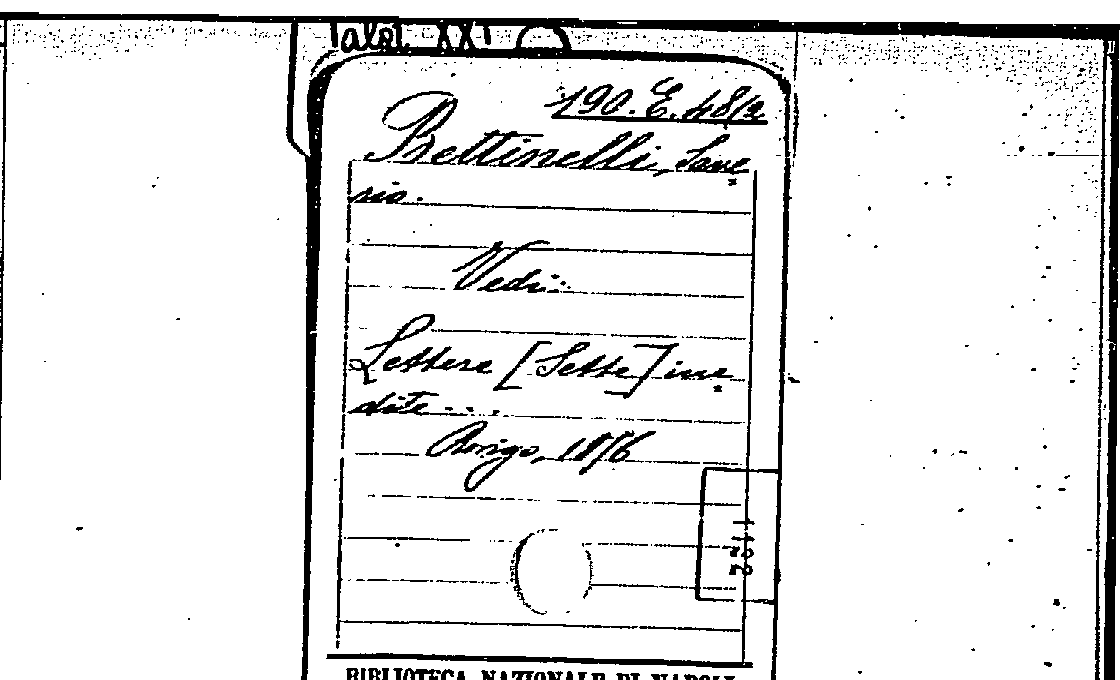 190. E. 48/2
Bettinelli, Save=
rio.
Vedi:
Lettere [Sette] ine=
dite ....
Rovigo, 1816
1122
BIBLIOTECA NAZIONALE DI NAPOLI